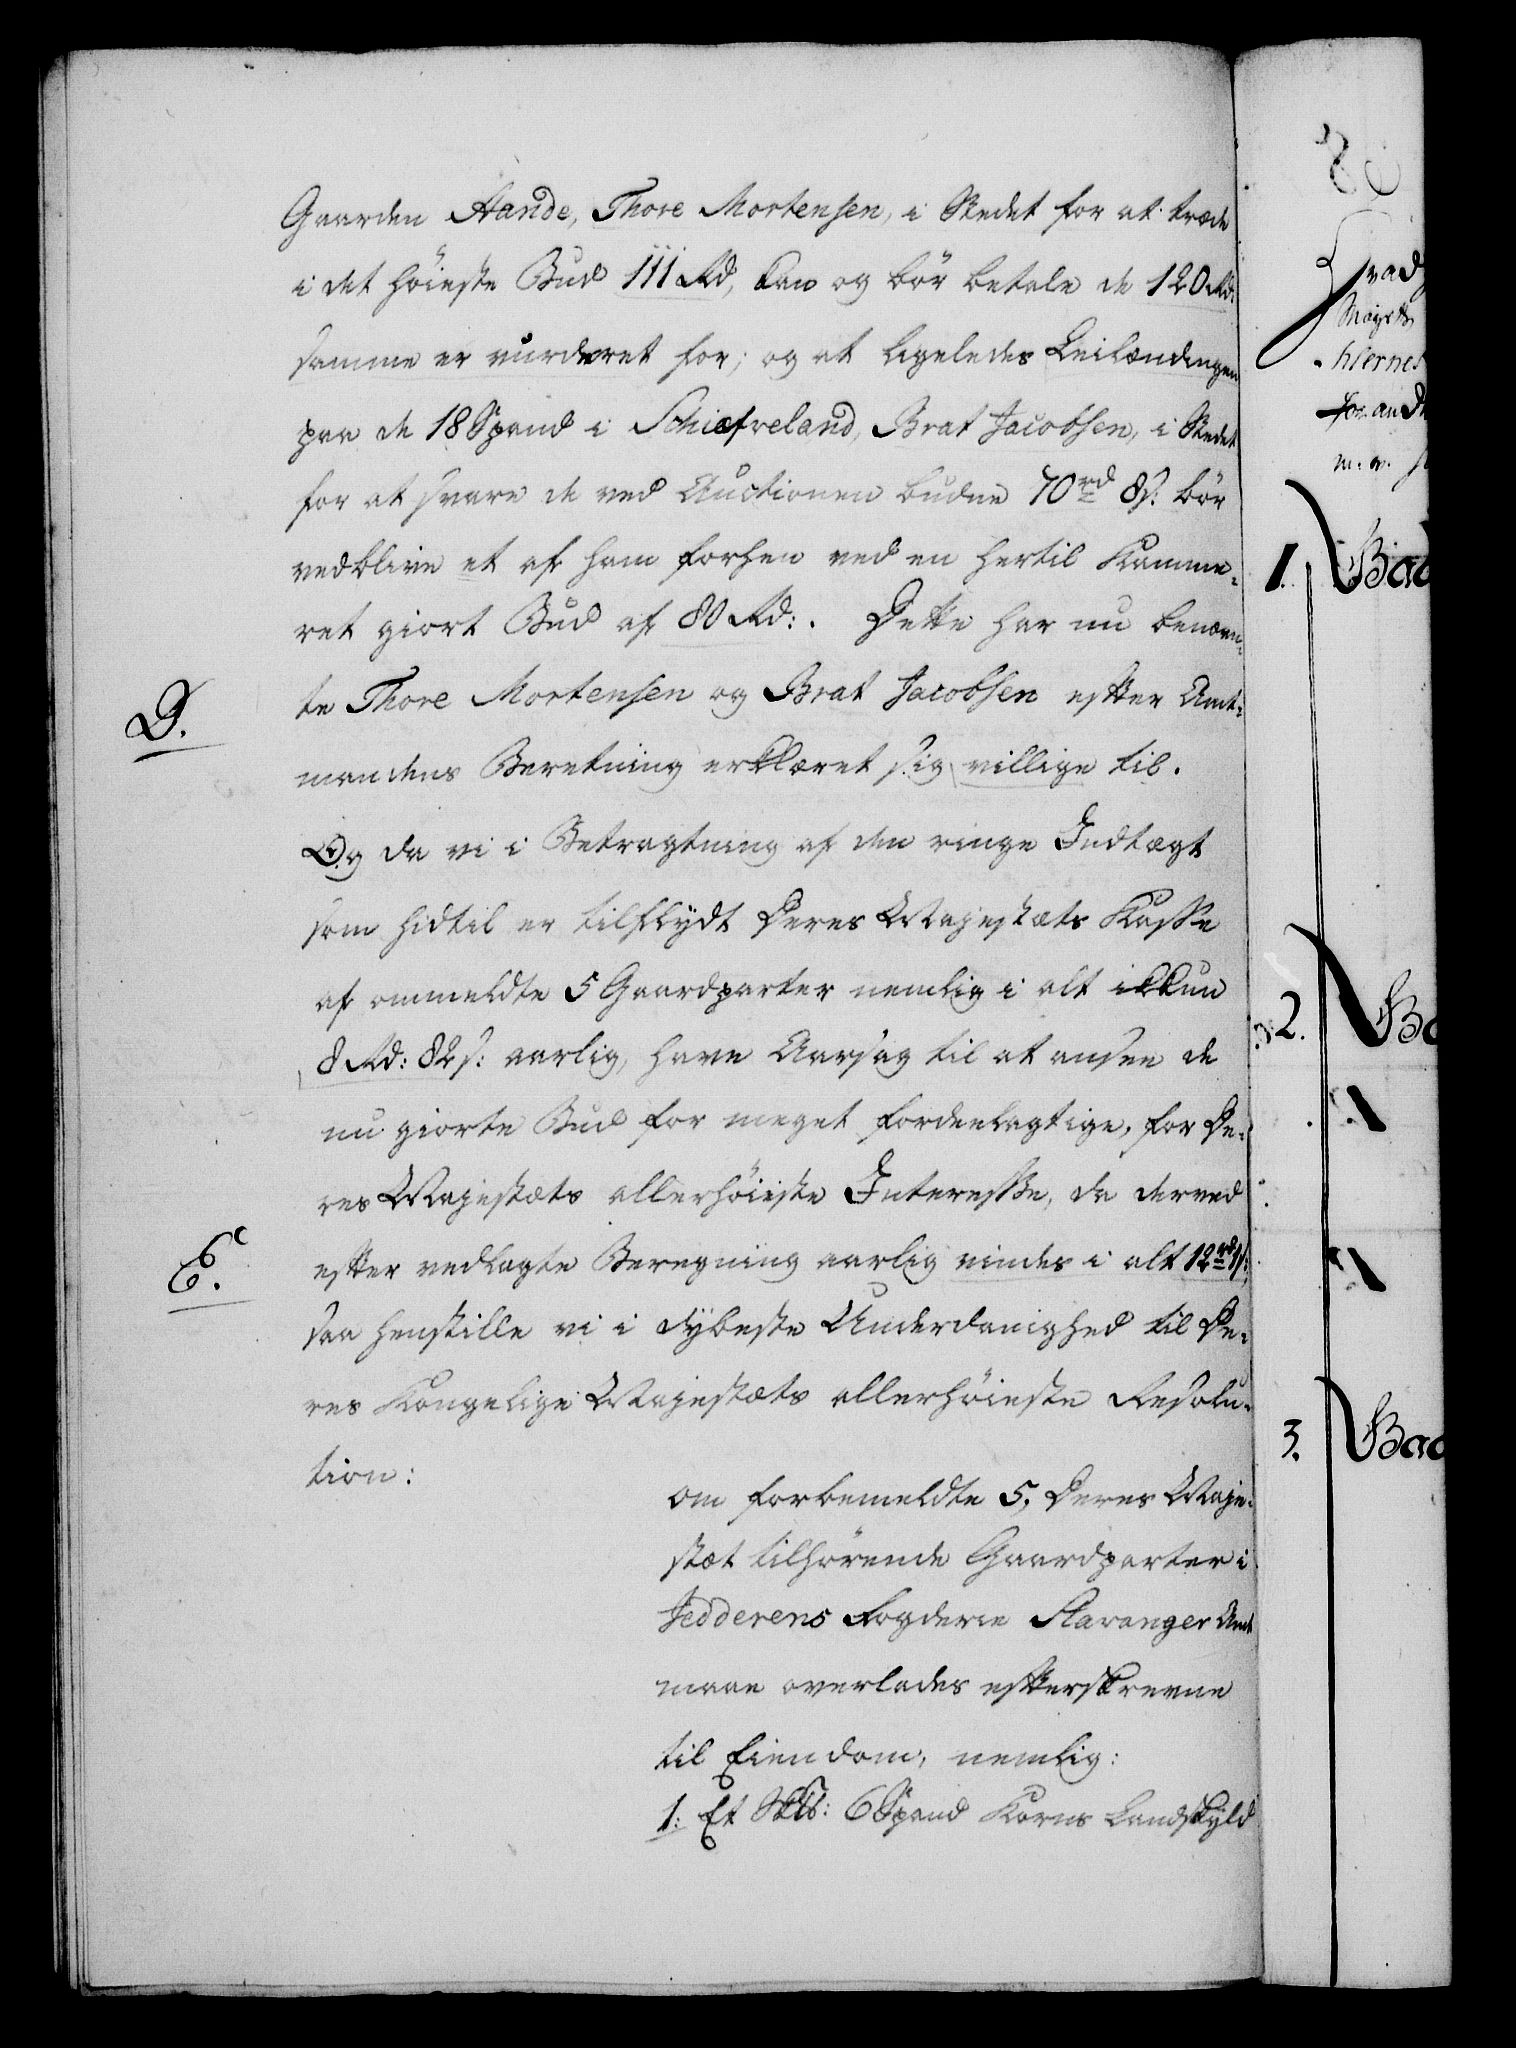 Gaarden Aande, Thore Mortensen, i Stedet for at træde
i det høieste Bud 111 Rd, kan og bør betale de 120 Rd:
samme er vurderet for; og at ligeledes Leilændingen
paa de 18 Spand i Schiæfreland, Brat Jacobsen, i Stedet
for at svare de ved Auctionen budne 70 rd 8 s: bør
vedblive et af ham forhen ved en hertil Kamme-
ret giort Bud af 80 Rd:. Dette har nu benævn-
D.
te Thore Mortensen og Brat Jacobsen efter Amt-
mandens Beretning erklæret sig villige til.
Og da vi i Betragtning af den ringe Indtægt
som hidtil er tilflydt Deres Majestæts Kasse
af ommeldte 5 Gaardparter nemlig i alt ikkun
8 Rd: 82 s: aarlig, have Aarsag til at ansee de
nu giorte Bud for meget fordeelagtige, for De-
res Majestæts allerhøieste Interesse, da derved
E.
efter vedlagte Beregning aarlig vindes i alt 12 rd 1 s:,
saa henstille vi i dybeste Underdanighed til De-
res Kongelige Majestæts allerhøieste Resolu-
tion:
om forbemeldte 5, Deres Maje-
stæt tilhørende Gaardparter i
Jedderens Fogderie Stavanger Amt
maae overlades efterskrevne
til Eiendom, nemlig:
1: Et 6 Spand Korns Landskyld
1.
2.
3.